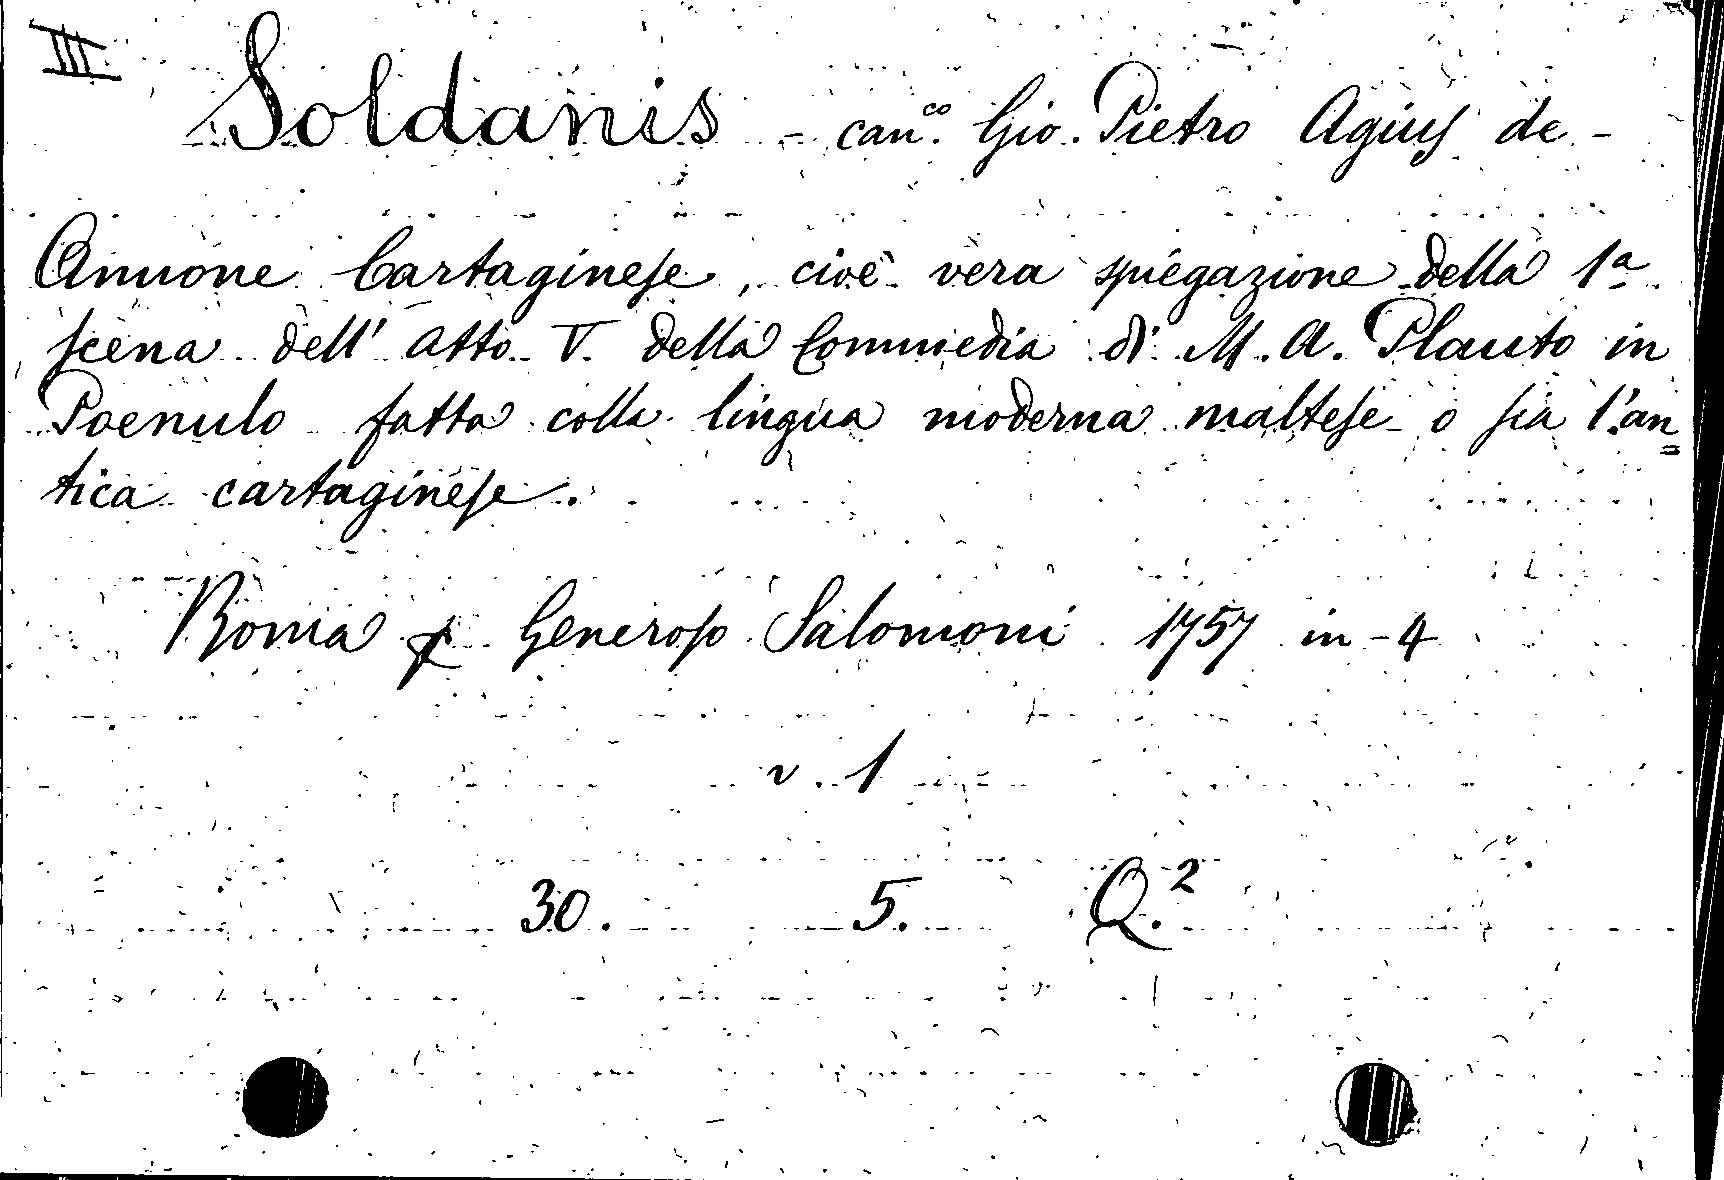 III
Soldanis - can.co Gio. Pietro Agius de -
Annone Cartaginese, cioè vera spiegazione della 1a
scena dell' atto V. della Commedia di M. A. Plauto in
Poenulo fatta colla lingua moderna maltese o sia l'an
tica cartaginese.
Roma p Generoso Salomoni 1757 in-4
v. 1
30. 5. Q.2